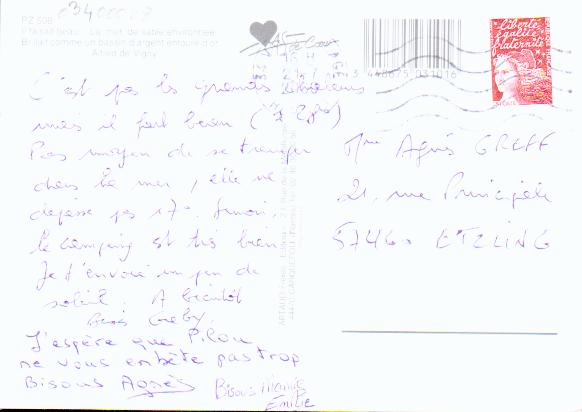 03400028
PZ 508
Il faisait beau. La mer, de sable environnée
Brillait comme un bassin d'argent entouré d'or
Alfred de Vigny
3 448675 031016
Liberté
égalité
fraternité
C'est pas les grandes
mais il fait beau
Pas moyen de se tremper
dans la mer, elle ne
dépasse pas 17°. Sinon,
le camping est très bien
Je t'envoie un peu de
soleil. A bientôt
J'espère que Pilou
ne vous embête pas trop
Bisous Agnès
Bisous Mamie
Emilie
Mme Agnès GREFF
21, rue Principale
57460 ETZLING